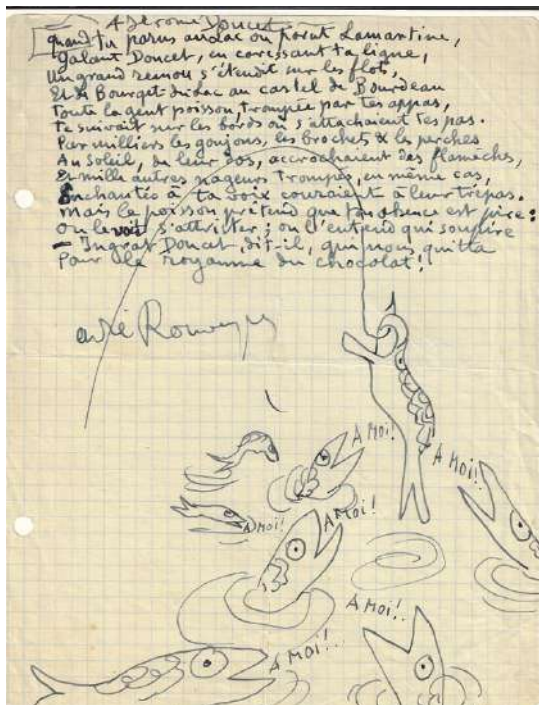 A Jérome Doucet
quand tu parus au lac ou parut Lamartine,
Galant Doucet, en caressant ta ligne,
Un grand remou s'étendit sur les flots,
Et du Bourget du Lac au castel de Bourdeau
Toute la gent poisson, trompée par tes appas,
te suivait sur les bords où s'attachaient tes pas.
Par milliers les goujons, les brochets & les perches
Au soleil, de leur dos, accrochaient des flamèches,
Et mille autres nageurs trompés, en même cas,
Enchantés à ta voix couraient à leur trépas.
Mais le poisson prétend que ton absence est pire :
On le voit s'attrister ; on l'entend qui soupire
- Ingrat Doucet, dit-il, qui nous quitta
Pour le royaume du chocolat !
André Rouveyre
A MOI !
A MOI !
A MOI !
A MOI !
A MOI !
A MOI !